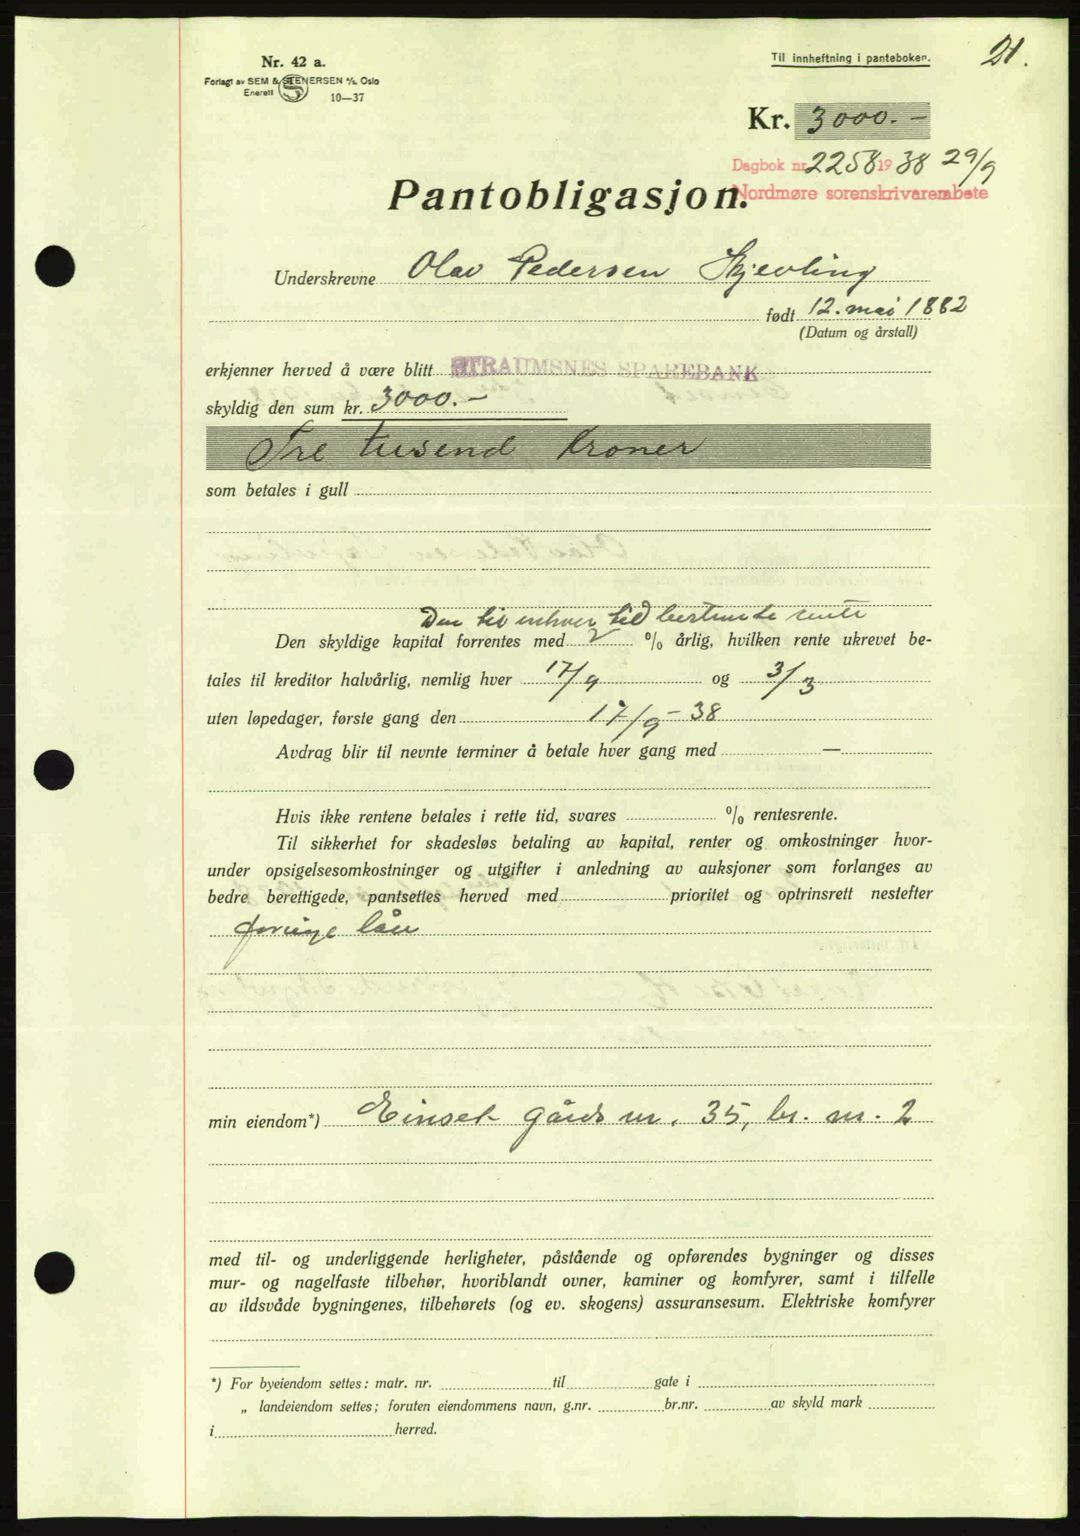 Nr. 42 a.
Forlagt av SEM & STENERSEN A/S, Oslo
Enerett
10—37
Til innheftning i panteboken.
21.
Kr. 3000.-
Dagbok nr. 2258 1938 29/9
Nordmøre sorenskrivarembete
Pantobligasjon.
Underskrevne Olav Pedersen Skjevling
født 12. mai 1882
(Datum og årstall)
erkjenner herved å være blitt STRAUMSNES SPAREBANK
skyldig den sum kr. 3000.-
Tre tusend kroner
som betales i gull
Den til enhver tid bestemte rente
Den skyldige kapital forrentes med % årlig, hvilken rente ukrevet be-
tales til kreditor halvårlig, nemlig hver 17/9 og 3/3
uten løpedager, første gang den 17/9 - 38
Avdrag blir til nevnte terminer å betale hver gang med —
Hvis ikke rentene betales i rette tid, svares % rentesrente.
Til sikkerhet for skadesløs betaling av kapital, renter og omkostninger hvor-
under opsigelsesomkostninger og utgifter i anledning av auksjoner som forlanges av
bedre berettigede, pantsettes herved med prioritet og optrinsrett nestefter
forrige lån
min eiendom*) Einset gårds nr. 35, br. nr. 2
med til- og underliggende herligheter, påstående og opførendes bygninger og disses
mur- og nagelfaste tilbehør, hvoriblandt ovner, kaminer og komfyrer, samt i tilfelle
av ildsvåde bygningenes, tilbehørets (og ev. skogens) assuransesum. Elektriske komfyrer
*) For byeiendom settes: matr. nr. til gate i
„ landeiendom settes; foruten eiendommens navn, g.nr. br.nr. av skyld mark
i herred.